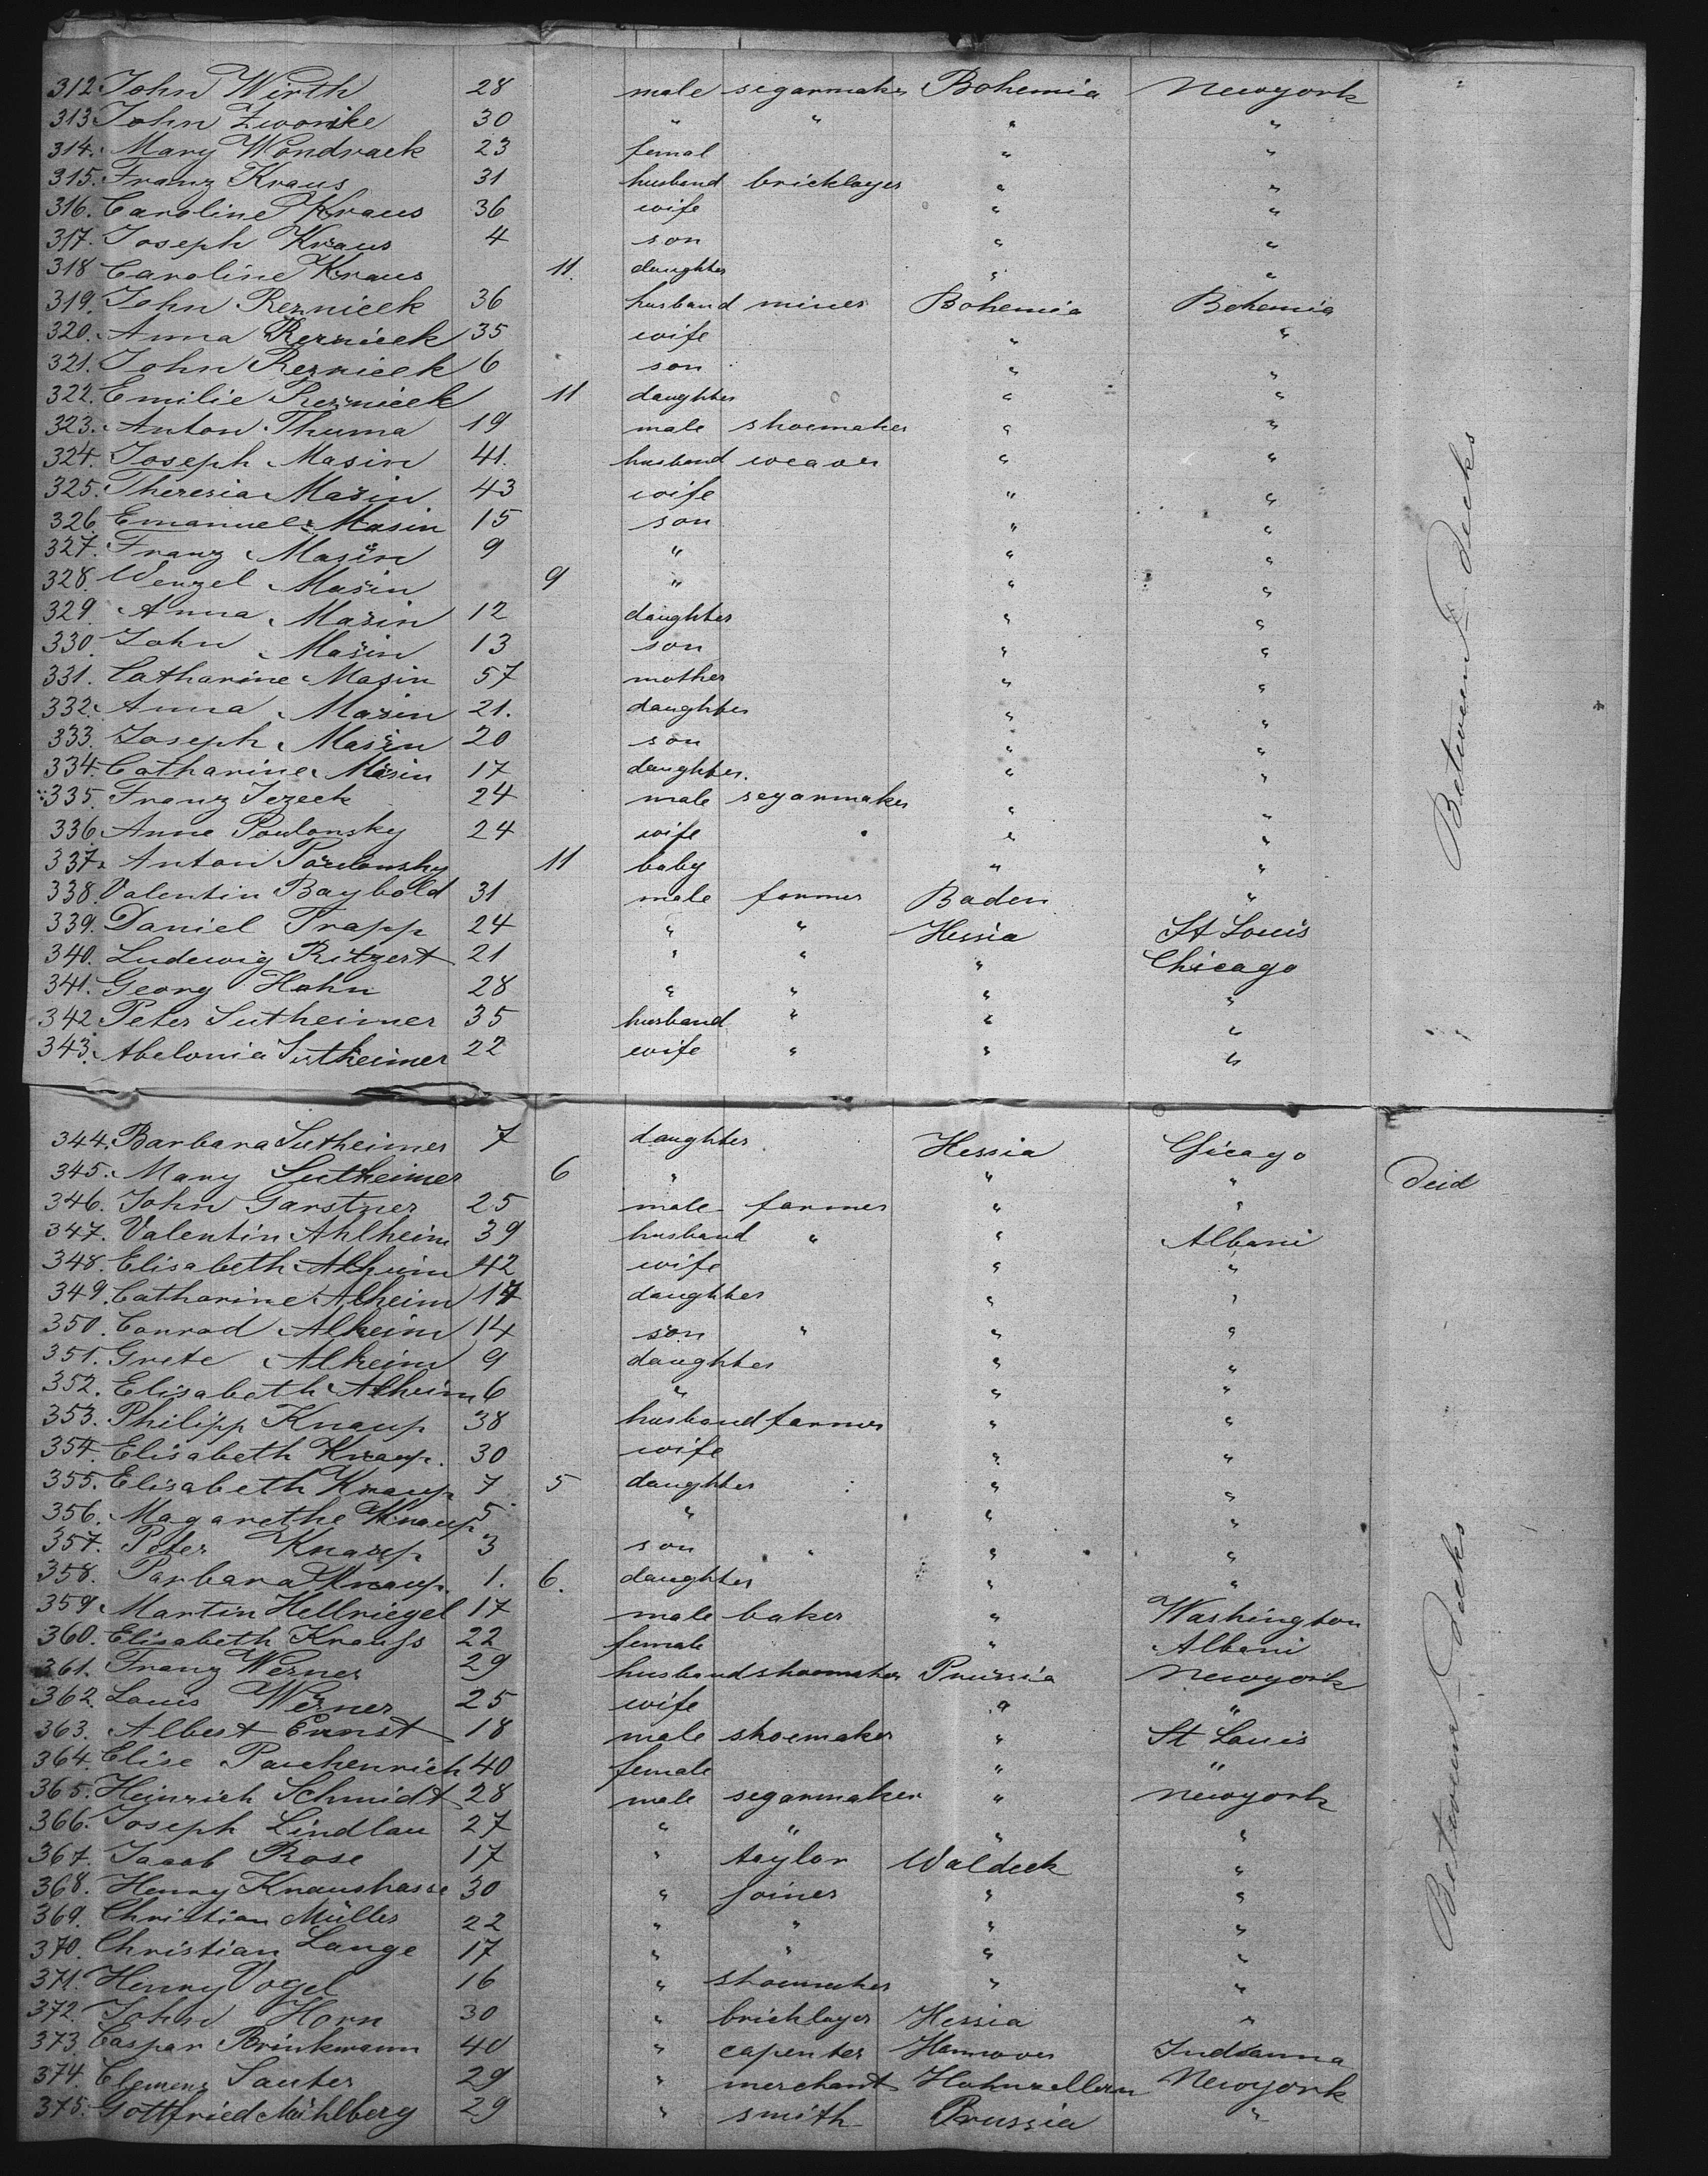 312. John Wirth 28 male segarmaker Bohemia Newyork
313. John Zwonike 30 " " " "
314. Mary Wondracek 23 femal " "
315. Franz Kraus 31 husband bricklayer " "
316. Caroline Kraus 36 wife " "
317. Joseph Kraus 4 son " "
318 Caroline Kraus 11. daughter " "
319. John Reznicek 36 husband miner Bohemia Bohemia
320. Anna Reznicek 35 wife " "
321. John Reznicek 6 son " "
322. Emilie Reznicek 11 daughter " "
323. Anton Thuma 19 male shoemaker " "
324. Joseph Masin 41. husband weaver " "
325. Theresia Mašin 43 wife " "
326. Emanuel Masin 15 son " "
327. Franz Mašin 9 " " "
328. Wenzel Mašin 9 " " "
329. Anna Mašin 12 daughter " "
330. John Mašin 13 son " "
331. Catharine Masin 57 mother " "
332. Anna Mašin 21. daughter " "
333. Joseph Mašin 20 son " "
334. Catharine Mašin 17 daughter. " "
335. Franz Jezeck 24 male segarmaker " "
336. Anne Poulonsky 24 wife " "
337. Anton Poulonsky 11 baby " "
338. Valentin Baybold 31 male farmer Baden "
339. Daniel Trapp 24 " " Hessia St Louis
340. Ludewig Ritzert 21 " " " Chicago
341. Georg Hahn 28 " " " "
342. Peter Sutheimer 35 husband " " "
343. Abelonia Sutheimer 22 wife " " "
Betwen Decks
344. Barbara Sutheimer 7 daughter Hessia Chicago
345. Mary Sutheimer 6 " " " Deid
346. John Garstner 25 male farmer " "
347. Valentin Ahlheim 39 husband " " Albani
348. Elisabeth Alheim 42 wife " "
349. Catharine Alheim 17 daughter " "
350. Conrad Alheim 14 son " " "
351. Grete Alheim 9 daughter " "
352. Elisabeth Alheim 6 " " "
353. Philipp Knaup 38 husband farmer " "
354. Elisabeth Knaup. 30 wife " "
355. Elisabeth Knaup 7 5 daughter " "
356. Magarethe Knaup 5 " " "
357. Peter Knaup 3 son " "
358. Parbara Knaup. 1. 6. daughter " "
359. Martin Hellriegel 17 male baker " Washington
360. Elisabeth Krauss 22 female " Albani
361. Franz Werner 29 husband shoemaker Prussia Newyork
362. Louis Werner 25 wife " "
363. Albert Ernst 18 male shoemaker " St Louis
364. Elise Pauchenrich 40 female " "
365. Heinrich Schmidt 28 male segarmaker " Newyork
366. Joseph Lindlau 27 " " " "
367. Jacob Rose 17 " taylor Waldeck "
368. Henry Knaushasse 30 " joiner " "
369. Christian Müller 22 " " " "
370. Christian Lange 17 " " " "
371. Henry Vogel 16 " shoemaker " "
372. John Horn 30 " bricklayer Hessia "
373. Caspar Brinkmann 40 " capenter Hannover Indianna
374. Clemens Sauter 29 " merchant Hohnzellern Newyork
375. Gottfried Mühlberg 29 " smith Prussia "
Betwen Decks